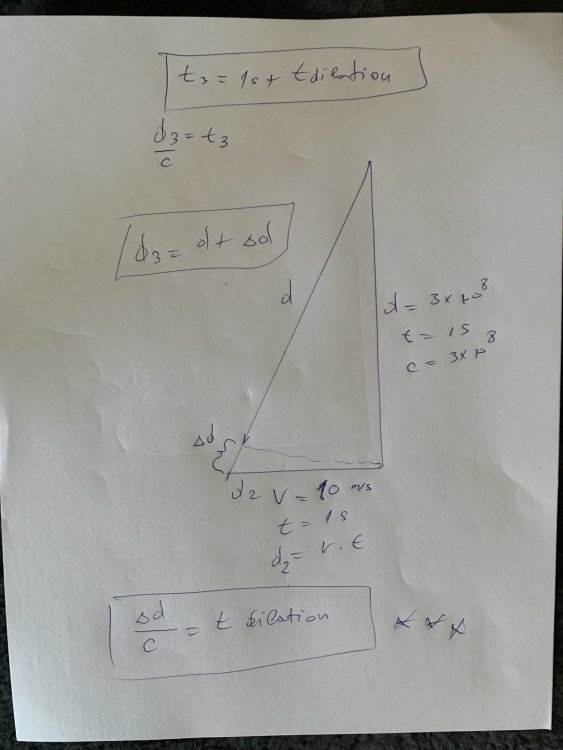 t₃ = 1s + t dilation
d₃/c = t₃
d₃ = d + Δd
d
d = 3×10⁸
t = 1s
c = 3×10⁸
Δd
d₂ V = 10 m/s
t = 1s
d₂ = v . t
Δd/c = t dilation